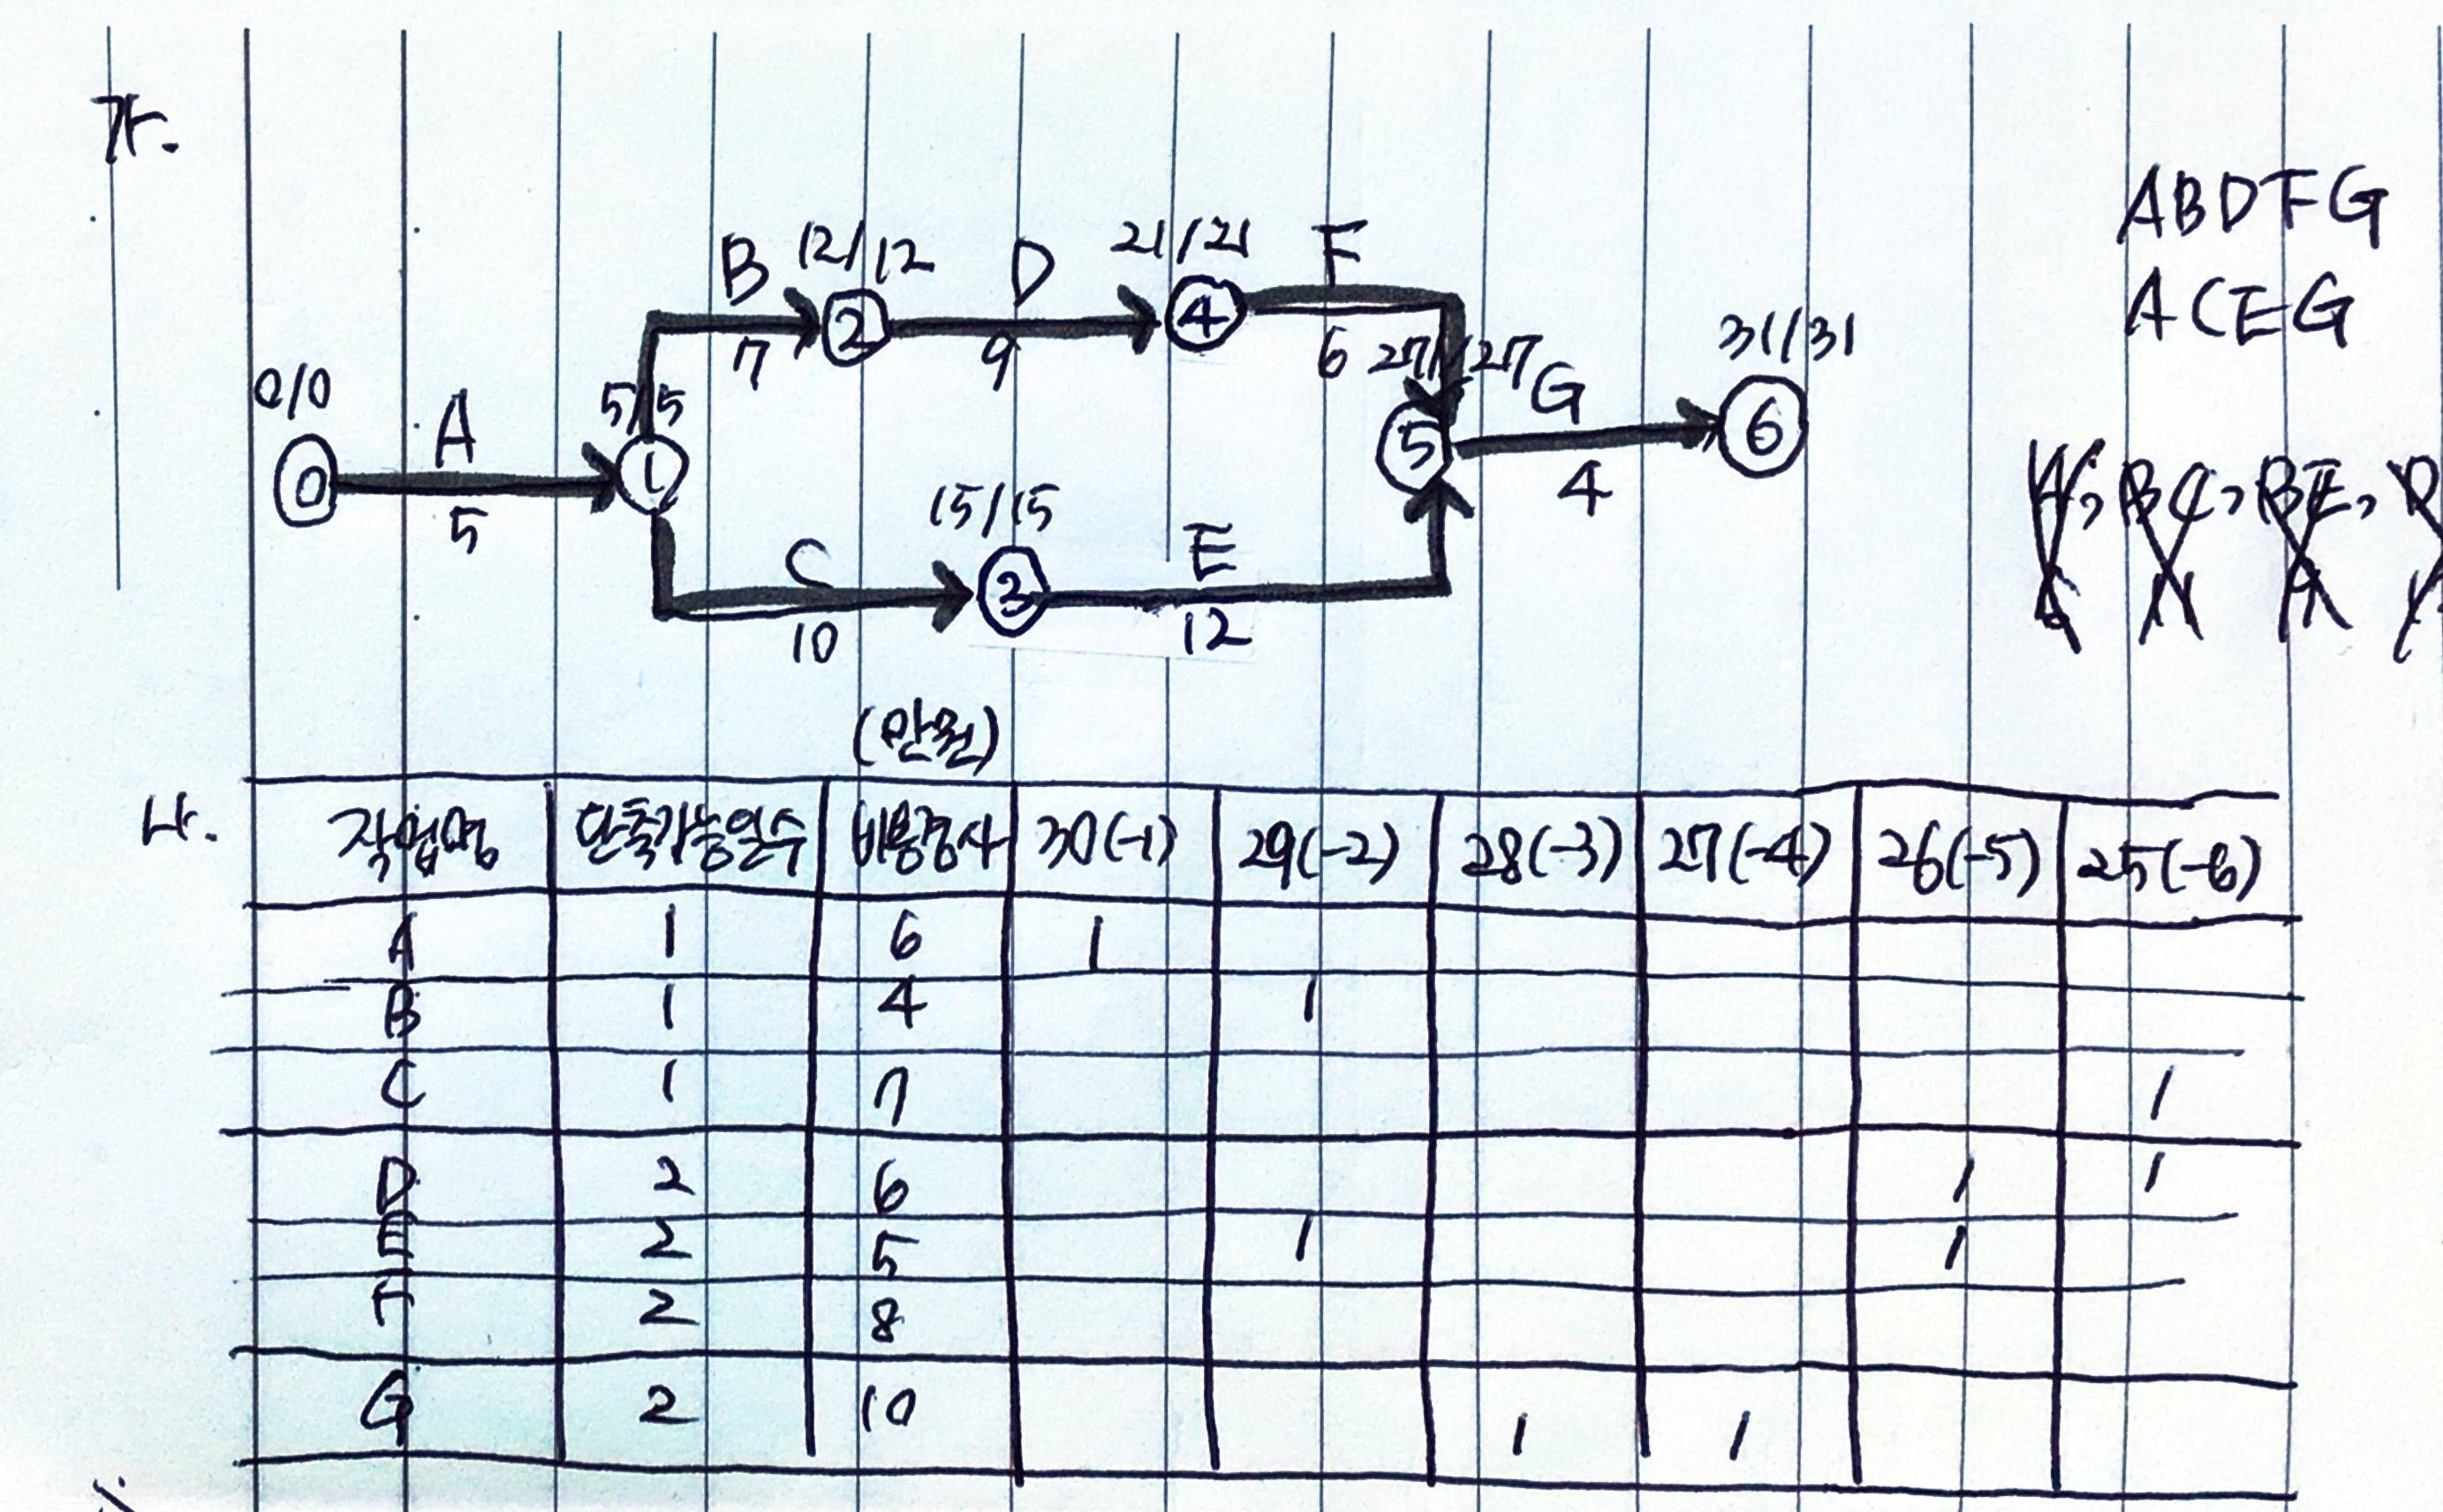 가.
ABDFG
ACEG
B 12/12 D 21/21 F
② ④
7 9 6 27/27 G 31/31
0/0 A 5/5
⓪ ① ⑤ ⑥
5 4
15/15 E
C ③
10 12
A, BC, BE, D
(만원)
나.
작업명 단축가능일수 비용경사 30(-1) 29(-2) 28(-3) 27(-4) 26(-5) 25(-6)
A 1 6 1
B 1 4 1
C 1 7 1
D 2 6 1 1
E 2 5 1 1
F 2 8
G 2 10 1 1